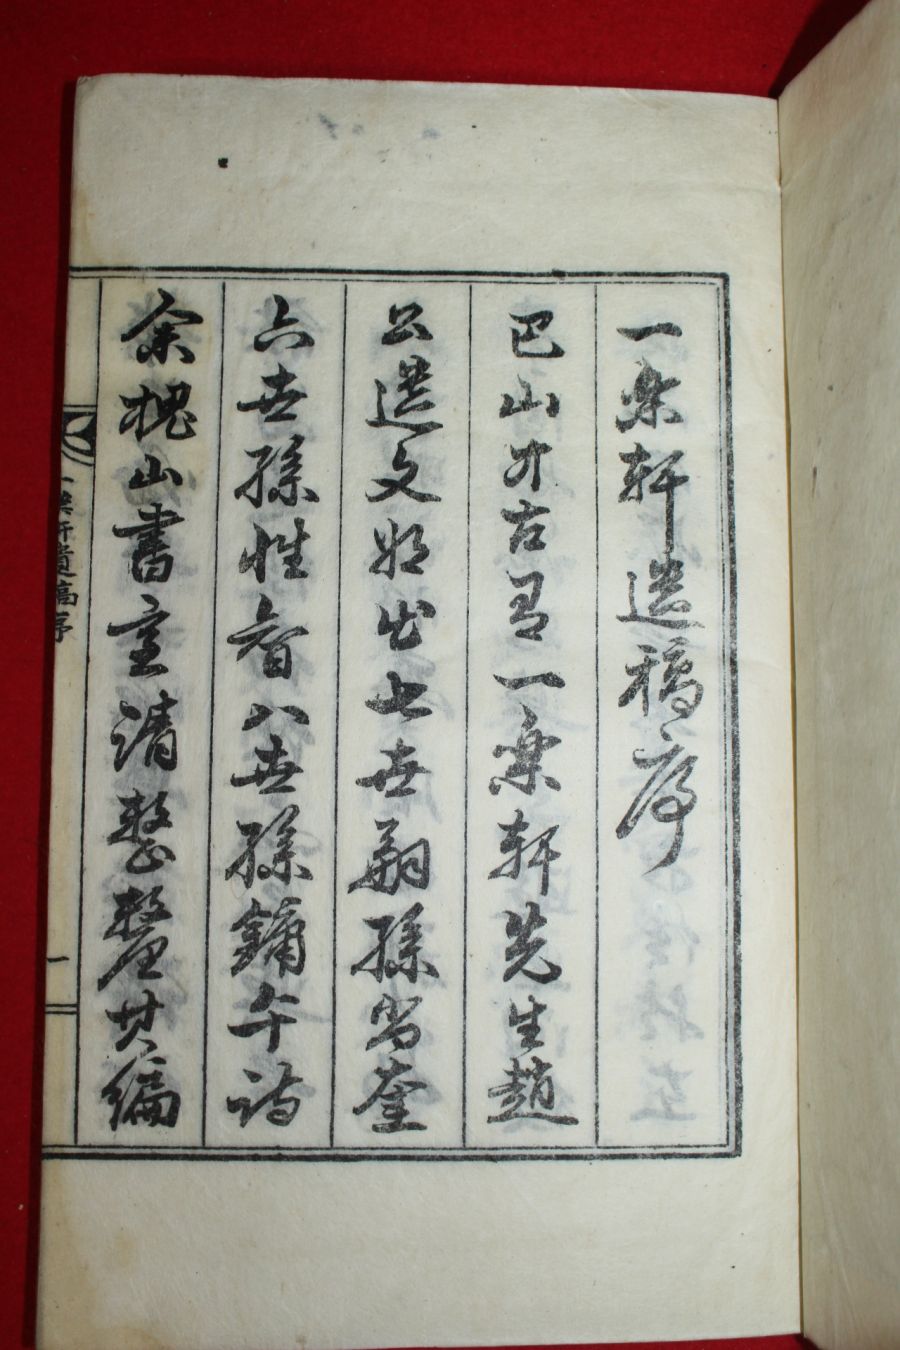 一樂軒遺稿序
巴山才古有一樂軒先生趙
公遺文始出七世嗣孫尚奎
六世孫性睿八世孫鏞午訪
余槐山書室請整釐其編
一樂軒遺稿序
一